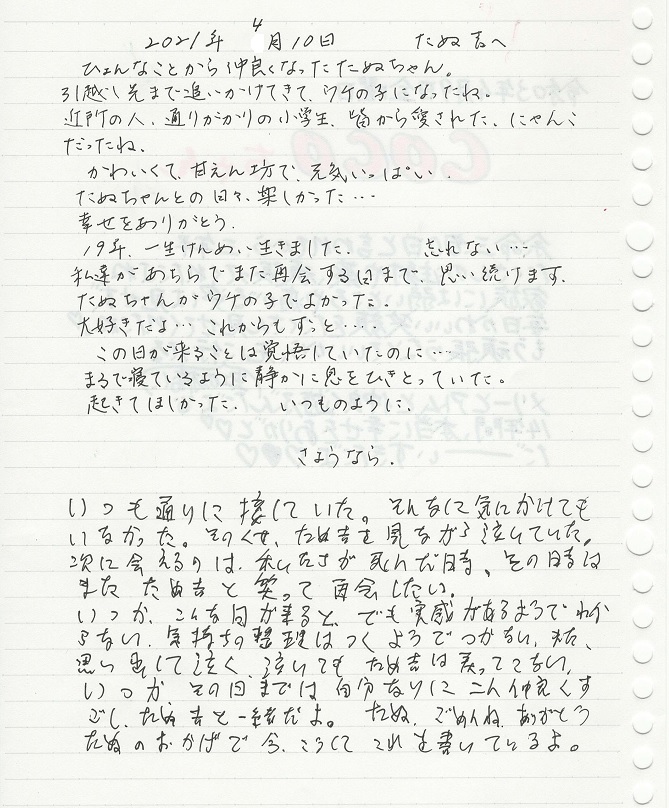 2021年4月10日 たぬ吉へ
ひょんなことから仲良くなったたぬちゃん。
引越し先まで追いかけてきて、ウケの子になったね。
近所の人、通りがかりの小学生、皆から愛された、にゃんこ
だったね、
かわいくて、甘えん坊で、元気いっぱい、
たぬちゃんとの日々、楽しかった…
幸せをありがとう、
19年、一生けんめい生きました、 忘れない…
私達があちらでまた再会する日まで、思い続けます、
たぬちゃんがウケの子でよかった、
大好きだよ… これからもずっと‥‥
この日が来ることは覚悟していたのに…
まるで寝ているように静かに息をひきとっていた。
起きてほしかった、 いつものように、
さようなら、
いつも通りに接していた。そんなに気にかけても
いなかった。そのくせ、たぬ吉を見ながら泣いていた。
次に会えるのは、私たちが死んだ時、その時は
また たぬ吉と笑って再会したい。
いつか、こんな日が来ると、でも実感があるようでわか
らない、気持ちの整理はつくようでつかない、また、
思い出して泣く、泣いてもたぬ吉は戻ってこない、
いつか、その日までは自分なりに 仲良くす
ごし、たぬ吉と一緒だよ。 たぬ、ごめんね、ありがとう
たぬのおかげで今、こうしてこれを書いているよ。